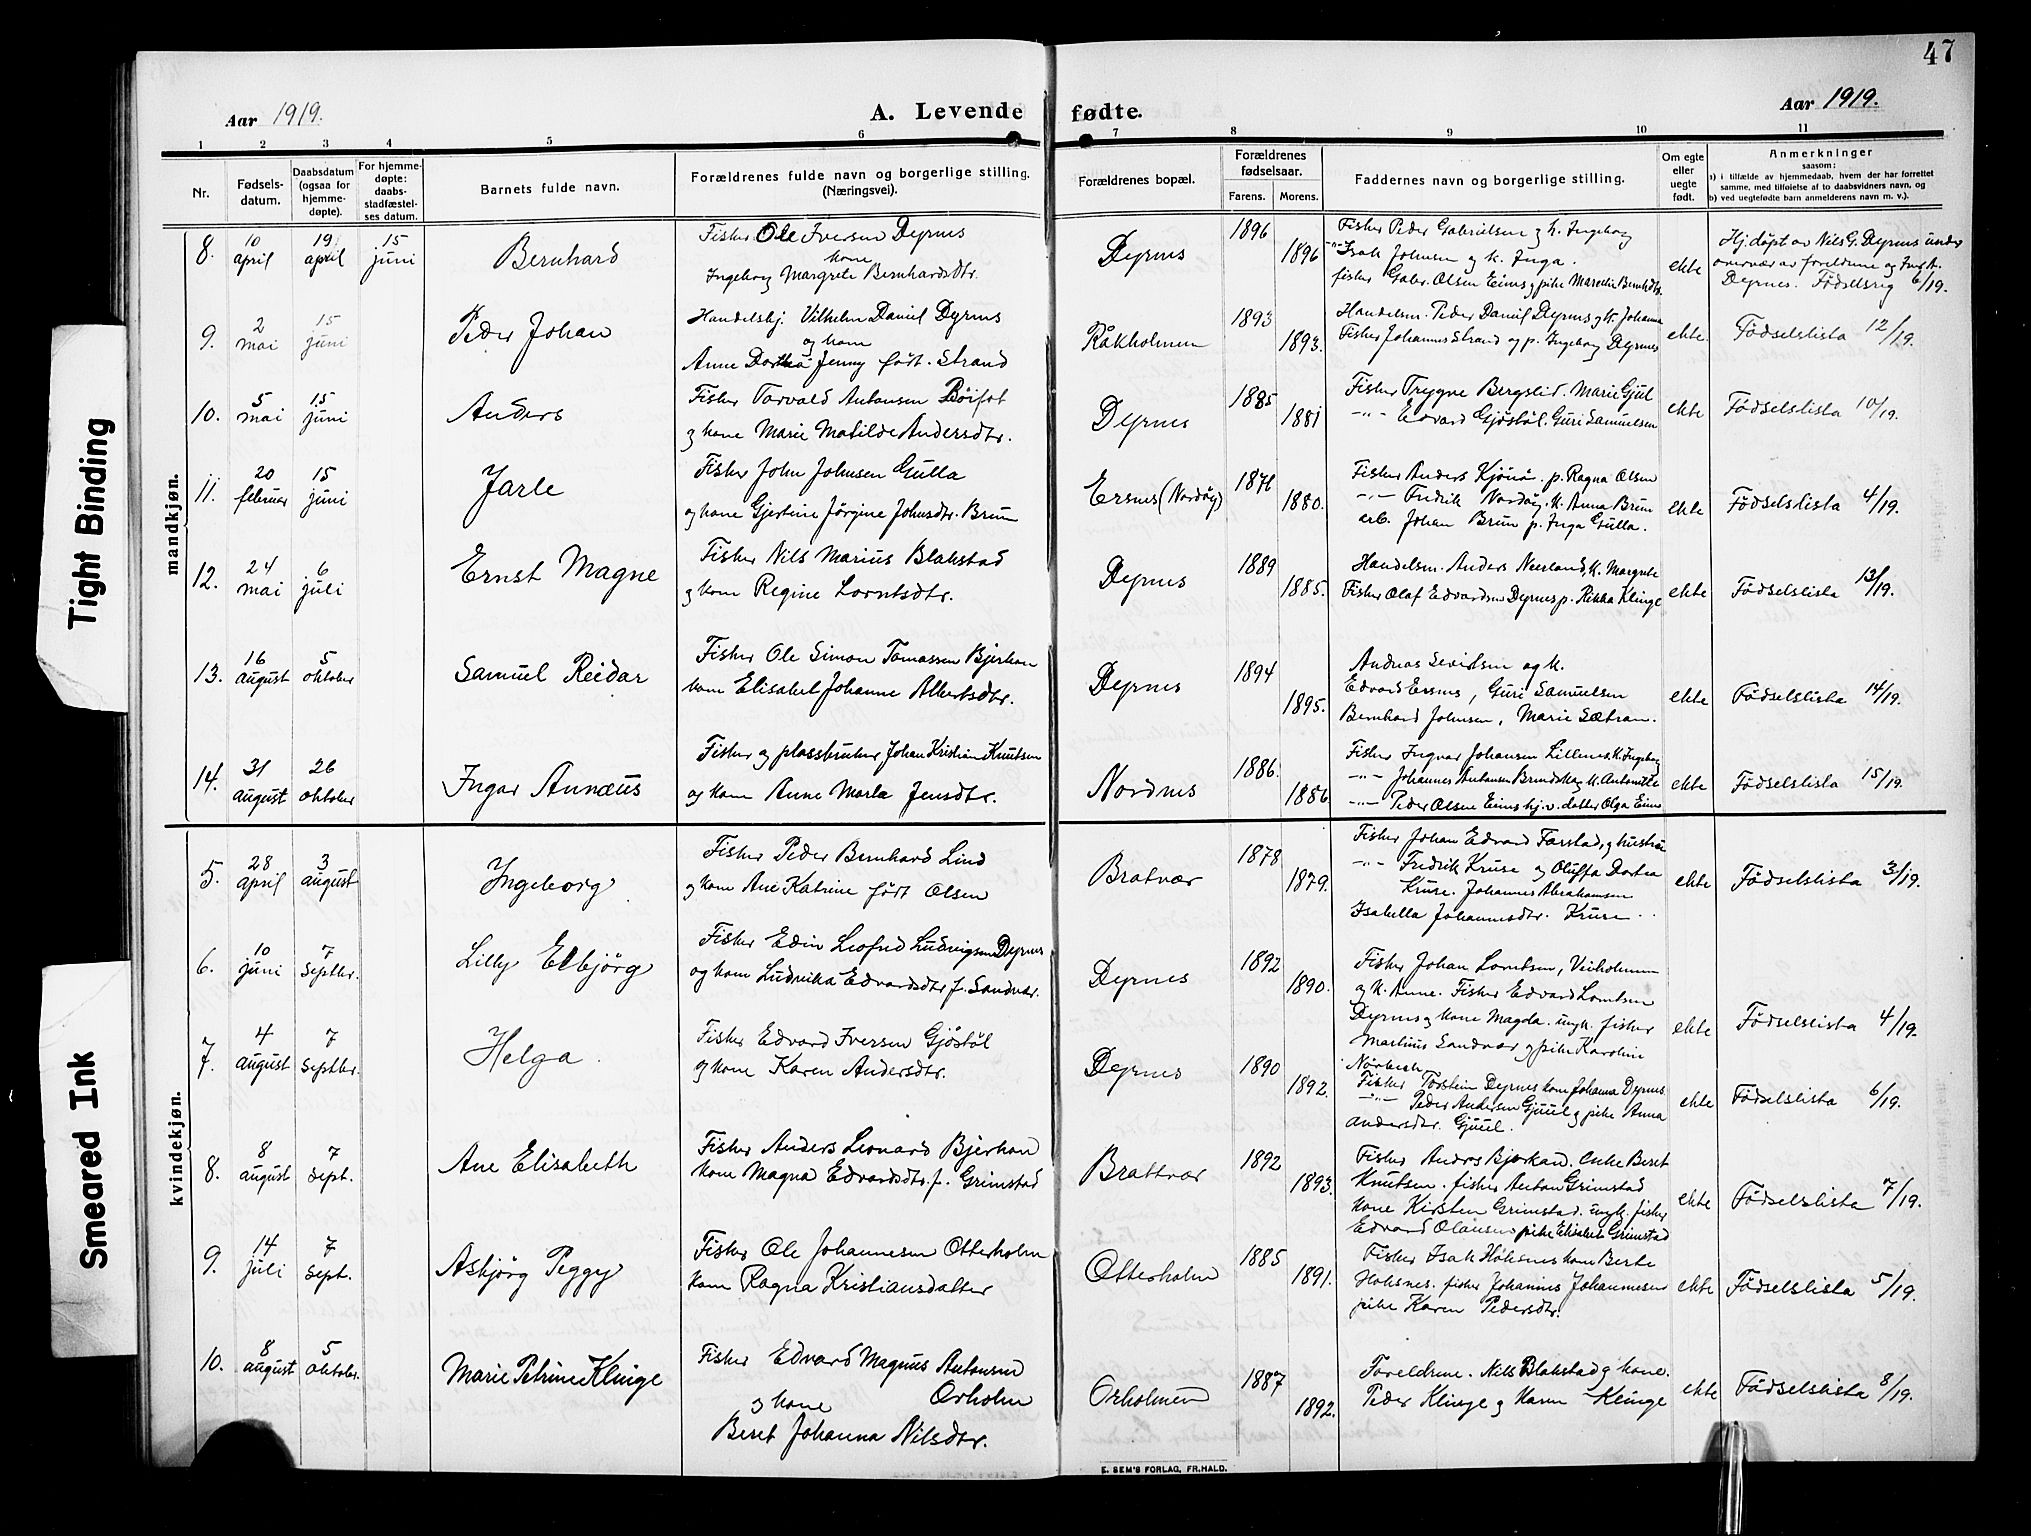 47
Aar 1919.
A. Levende fødte.
Aar 1919.
1 2 3 4 5 6 7 8 9 10 11
Nr.
Fødsels-
datum.
Daabsdatum
(ogsaa for
hjemme-
døpte).
For hjemme-
døpte:
daabs-
stadfæstel-
ses datum.
Barnets fulde navn.
Forældrenes fulde navn og borgerlige stilling.
(Næringsvei).
Forældrenes bopæl.
Forældrenes
fødselsaar.
Farens. Morens.
Faddernes navn og borgerlige stilling.
Om egte
eller
uegte
født.
Anmerkninger
saasom:
a) i tilfælde av hjemmedaab, hvem der har forrettet
samme, med tilføielse af to daabsvidners navn, og
b) ved uegtefødte barn anmelderens navn m. v.).
mandkjøn.
8. 10 april 19 april 15 juni Bernhard
Fisker Ole Iversen Dyrnes
kone
Ingeborg Margrete Bernhardsdtr.
Dyrnes 1896 1896
Fisker Peder Gabrielsen og k. Ingeborg
-"- Isak Johnsen og k. Inga.
fisker Gabr. Olsen Eines og pike Marselie Bernhdtr.
ekte
Hj.døpt av Nils G. Dyrnes under
overvær av foreldrene og Ing A.
Dyrnes. Fødselsreg 6/19.
9. 2 mai 15 juni Peder Johan
Handelsbj. Vilhelm Daniel Dyrnes
og kone
Anne Dorthea Jenny født. Strand
Råkholmen 1893 1893.
Handelsm. Peder Daniel Dyrnes og k. Johanna
Fisker Johannes Strand og p. Ingeborg Dyrnes
ekte. Fødselslista 12/19.
10. 5 mai 15 juni Anders
Fisker Torvald Antonsen Böifot
og kone Marie Matilde Andersdtr.
Dyrnes 1885 1881
Fisker Trygve Bergslid. Marie Gjul
-"- Edvard Gjöstöl. Guri Samuelsen
ekte Fødselslista 10/19.
11. 20 februar 15 juni Jarle
Fisker John Johnsen Gulla
og kone Gjertine Jörgine Johnsdtr. Brun
Ersnes (Nordöy) 1876 1880.
Fisker Anders Kjönö. p. Ragna Olsen
-"- Fredrik Nordöy. k. Anna Brun
arb. Johan Brun p. Inga Gulla.
ekte Fødselslista 4/19.
12. 24 mai 6 juli Ernst Magne
Fisker Nils Marius Blakstad
og kone Regine Lorntsdtr.
Dyrnes 1889 1885.
Handelsm. Anders Neerland, k. Margrete
Fisker Olaf Edvardsen Dyrnes p. Rikka Klinge
ekte Fødselslista 13/19.
13. 16 august 5 oktober Samuel Reidar
Fisker Ole Simon Tomassen Bjerkan
kone Elisabet Johanne Albertsdtr.
Dyrnes 1894 1895.
Andreas Sevaldsen og k.
Edvard Ersnes, Guri Samuelsen
Bernhard Johnsen, Marie Sætran.
ekte Fødselslista 14/19.
14. 31 august 26 oktober Ingar Annæus
Fisker og plassbruker Johan Kristian Knutsen
og kone Anne Marta Jensdtr.
Nordnes 1886. 1886
Fisker Ingvar Johansen Lillenes k. Ingeborg
-"- Johannes Antonsen Brindskag k. Antonette
-"- Peder Olsen Eines hj.v. datter Olga Eines
ekte Fødselslista 15/19.
kvindekjøn.
5. 28 april 3 august Ingeborg
Fisker Peder Bernhard Lind
og kone Ane Katrine født Olsen
Bratvær 1878 1879.
Fisker Johan Edvard Farstad, og hustru
-"- Fredrik Kruse og Oluffa Dortea
Kruse. Johannes Abrahamsen
Isabella Johannesdtr. Kruse.
ekte Fødselslista 3/19.
6. 10 juni 7 septbr. Lilly Elbjörg
Fisker Edin Leofred Ludvigsen Dyrnes
og kone Ludvika Edvardsdtr f. Sandvær.
Dyrnes 1892 1890.
Fisker Johan Lorntsen, Veiholmen
og k. Anne. Fisker Edvard Lorntsen
Dyrnes og kone Magda. ungk. fisker
Martinus Sandvær og pike Karoline
Nørbech
ekte Fødselslista 4/19.
7. 4 august 7 septbr. Helga.
Fisker Edvard Iversen Gjöstöl
og kone Karen Andersdtr.
Dyrnes 1890 1892.
Fisker Torstein Dyrnes kone Johanna Dyrnes.
-"- Peder Andersen Gjuul og pike Anna
Andersdtr. Gjuul.
ekte Fødselslista 6/19.
8. 8 august 7 sept. Ane Elisabeth
Fisker Anders Leonard Bjerkan
kone Magna Edvardsdtr. f. Grimstad
Brattvær 1892 1893.
Fisker Andrs Bjerkan. enke Beret
Knutsen. fisker Anton Grimstad
kone Kirsten Grimstad. ungk. fisker
Edvard Olausen pike Elisabet Grimstad
ekte Fødselslista 7/19.
9. 14 juli 7 sept. Asbjörg Peggy
Fisker Ole Johannesen Otterholm
kone Ragna Kristiansdatter
Otterholm 1885 1891.
Fisker Isak Holsnes kone Berte
Holsnes. fisker Johannes Johannesen
pike Karen Pedersdtr.
ekte Fødselslista 5/19.
10. 8 august 5 oktober. Marie Petrine Klinge
Fisker Edvard Magnus Antonsen
og kone Orholm
Beret Johanna Nilsdtr.
Orholmen 1887 1892.
Foreldrene. Nils Blakstad og kone.
Peder Klinge og Karen Klinge
ekte Fødselslista 8/19.
E. SEM'S FORLAG, FR.HALD.
Tight Binding
Smeared Ink